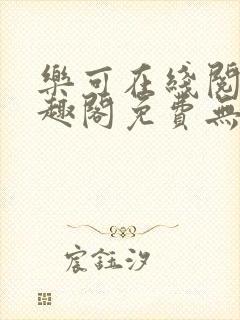 樂可在綫閱
趣閣免費無
宸鈺汐